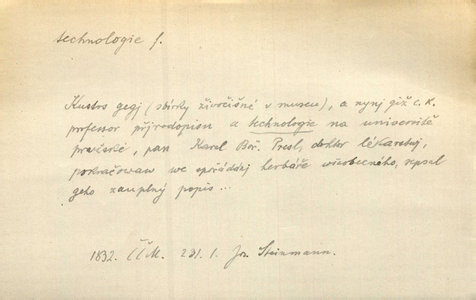 technologie f.
Kustos gegj (sbirky živočišné v museu), a nynj giž c. k.
professor přjrodopisu a technologie na universitě
pražské, pan Karel Boř. Presl, doktor lékařstwj,
pokračowaw we spořádánj herbáře wšeobecného, sepsal
geho zauplný popis ...
1832. ČČM. 231. 1. Jos. Steinmann.